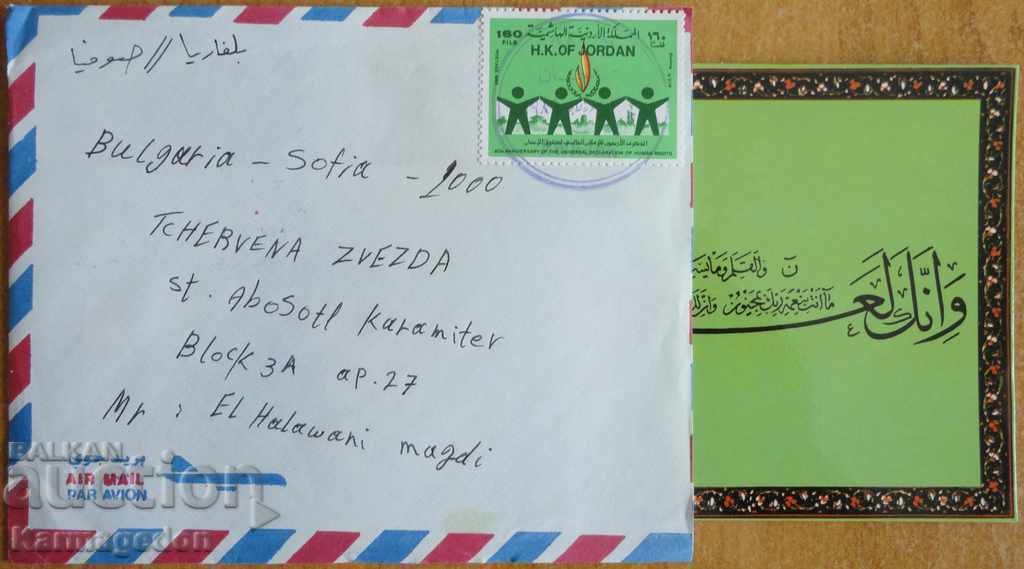 بلغاريا // صوفيا
160
FILS
المملكة الأردنية الهاشمية
١٦٠
فلساً
H.K. OF JORDAN
40th ANNIVERSARY OF THE UNIVERSAL DECLARATION OF HUMAN RIGHTS
Bulgaria - Sofia - 1000
TCHERVENA ZVEZDA
st. Abosotl Karamiter
Block 3A ap. 27
Mr : El Halawani magdi
بريد جوي
AIR MAIL
PAR AVION
ن والقلم وما يسطر
ما أنت بنعمة ربك بمجنون وإن لك
وإنك لعـ
BALKAN
auction
Karmagedon